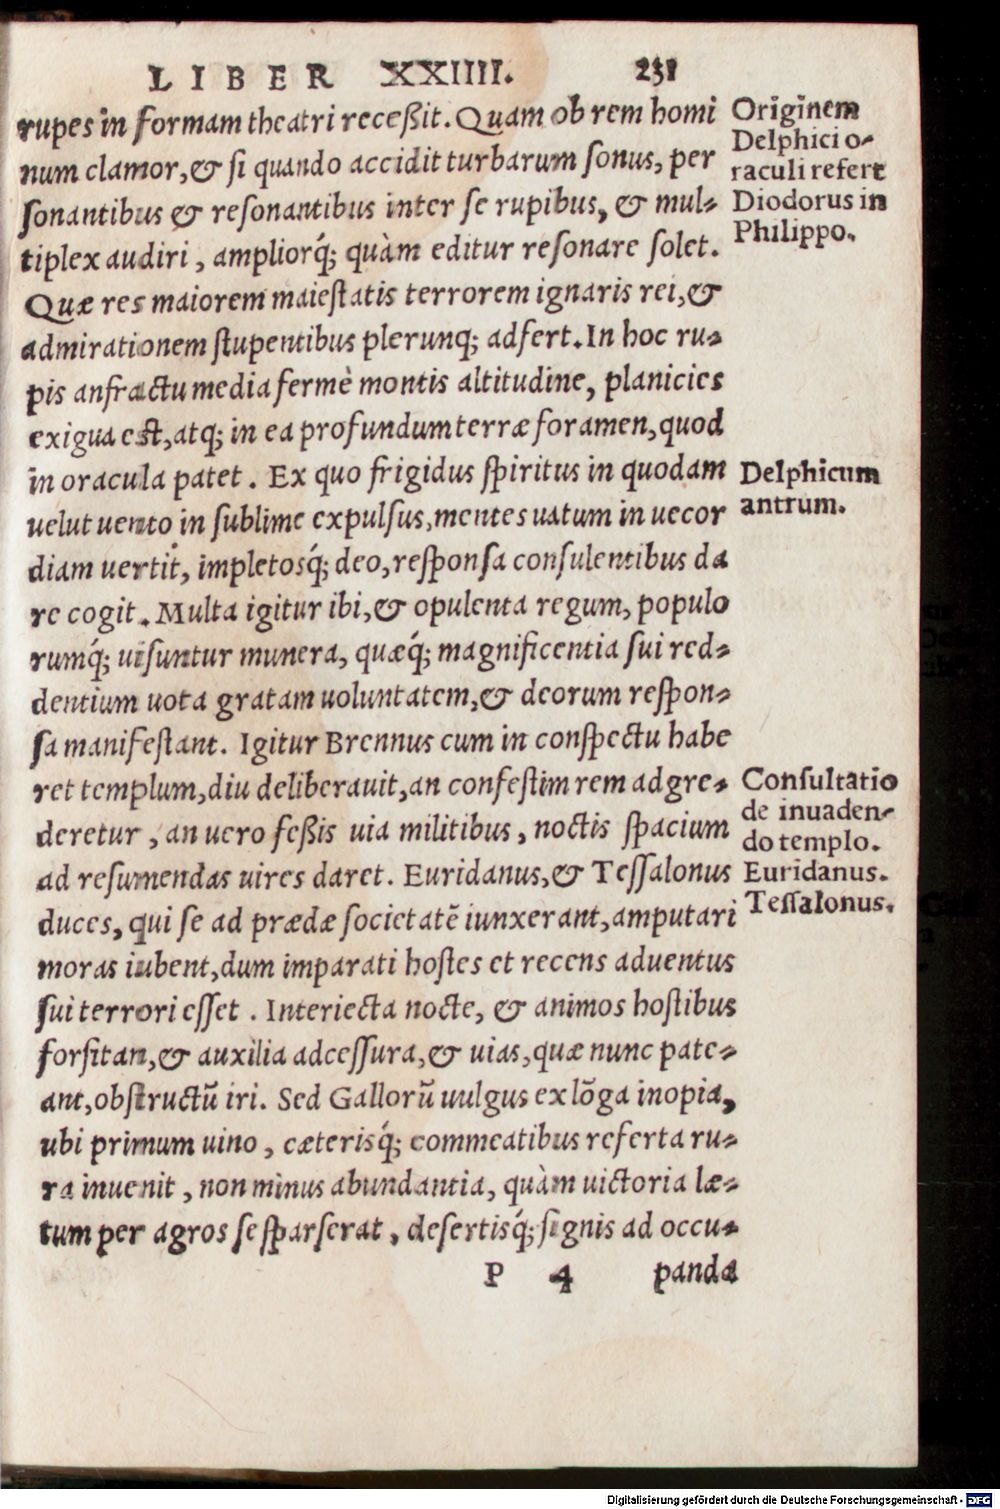 LIBER XXIIII. 231
rupes in formam theatri receßit. Quam ob rem homi
num clamor, & si quando accidit turbarum sonus, per
sonantibus & resonantibus inter se rupibus, & mul-
tiplex audiri, ampliorq́; quàm editur resonare solet.
Quæ res maiorem maiestatis terrorem ignaris rei, &
admirationem stupentibus plerunq; adfert. In hoc ru-
pis anfractu media fermè montis altitudine, planicies
exigua est, atq; in ea profundum terræ foramen, quod
in oracula patet. Ex quo frigidus spiritus in quodam
uelut uento in sublime expulsus, mentes uatum in uecor
diam uertit, impletosq́; deo, responsa consulentibus da
re cogit. Multa igitur ibi, & opulenta regum, populo
rumq́; uisuntur munera, quæq́; magnificentia sui red-
dentium uota gratam uoluntatem, & deorum respon-
sa manifestant. Igitur Brennus cum in conspectu habe
ret templum, diu deliberauit, an confestim rem adgre-
deretur, an uero feßis uia militibus, noctis spacium
ad resumendas uires daret. Euridanus, & Tessalonus
duces, qui se ad prædæ societatē iunxerant, amputari
moras iubent, dum imparati hostes et recens aduentus
sui terrori esset. Interiecta nocte, & animos hostibus
forsitan, & auxilia adcessura, & uias, quæ nunc pate-
ant, obstructū iri. Sed Gallorū uulgus ex lōga inopia,
ubi primum uino, cæterisq́; commeatibus referta ru-
ra inuenit, non minus abundantia, quàm uictoria læ-
tum per agros se sparserat, desertisq́; signis ad occu-
P 4 panda
Originem
Delphici o-
raculi refert
Diodorus in
Philippo.
Delphicum
antrum.
Consultatio
de inuaden-
do templo.
Euridanus.
Tessalonus.
Digitalisierung gefördert durch die Deutsche Forschungsgemeinschaft - DFG